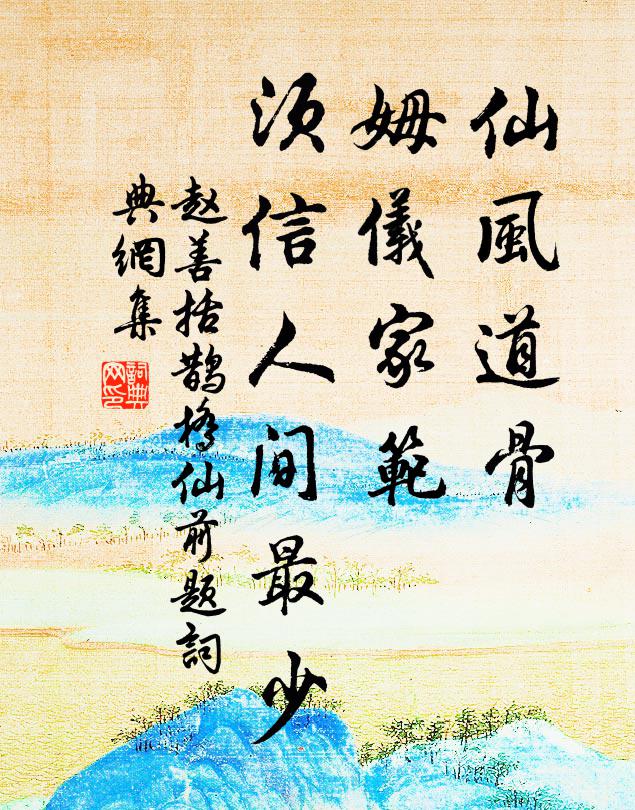 仙風道骨
姆儀家範
須信人間最少
赵善括鹊橋仙前題詞
典網集
詞典
网印